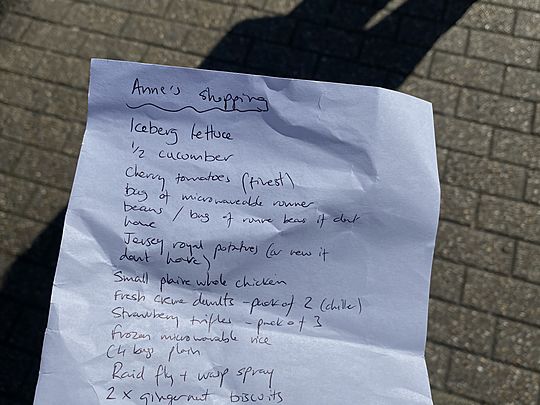 Anne's Shopping
Iceberg lettuce
1/2 cucomber
Cherry tomatoes (finest)
bag of microwaveable runner
beans / bag of runne beas if dont
have
Jersey royal potatoes (or new if
dont have)
Small plaire whole chicken
Fresh creme dounuts - pack of 2 (chiller)
Strawberry trifles - pack of 3
Frozen microwavable rice
bags plain
Raid fly + wasp spray
2 x gingernut biscuits